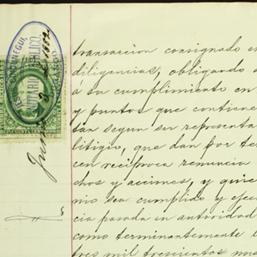 transaccion consignado en
diligencias, obligando a
su cumplimiento en
y puntos que contiene
dan segun se representa
litigio, que dan por te
cen reciproca renuncia
chos y acciones, y quie
mo sea cumplido y ejec
cia pasada en autoridad
como terminantemente e
tres mil trescientos nov
NOTARIO PUBLICO